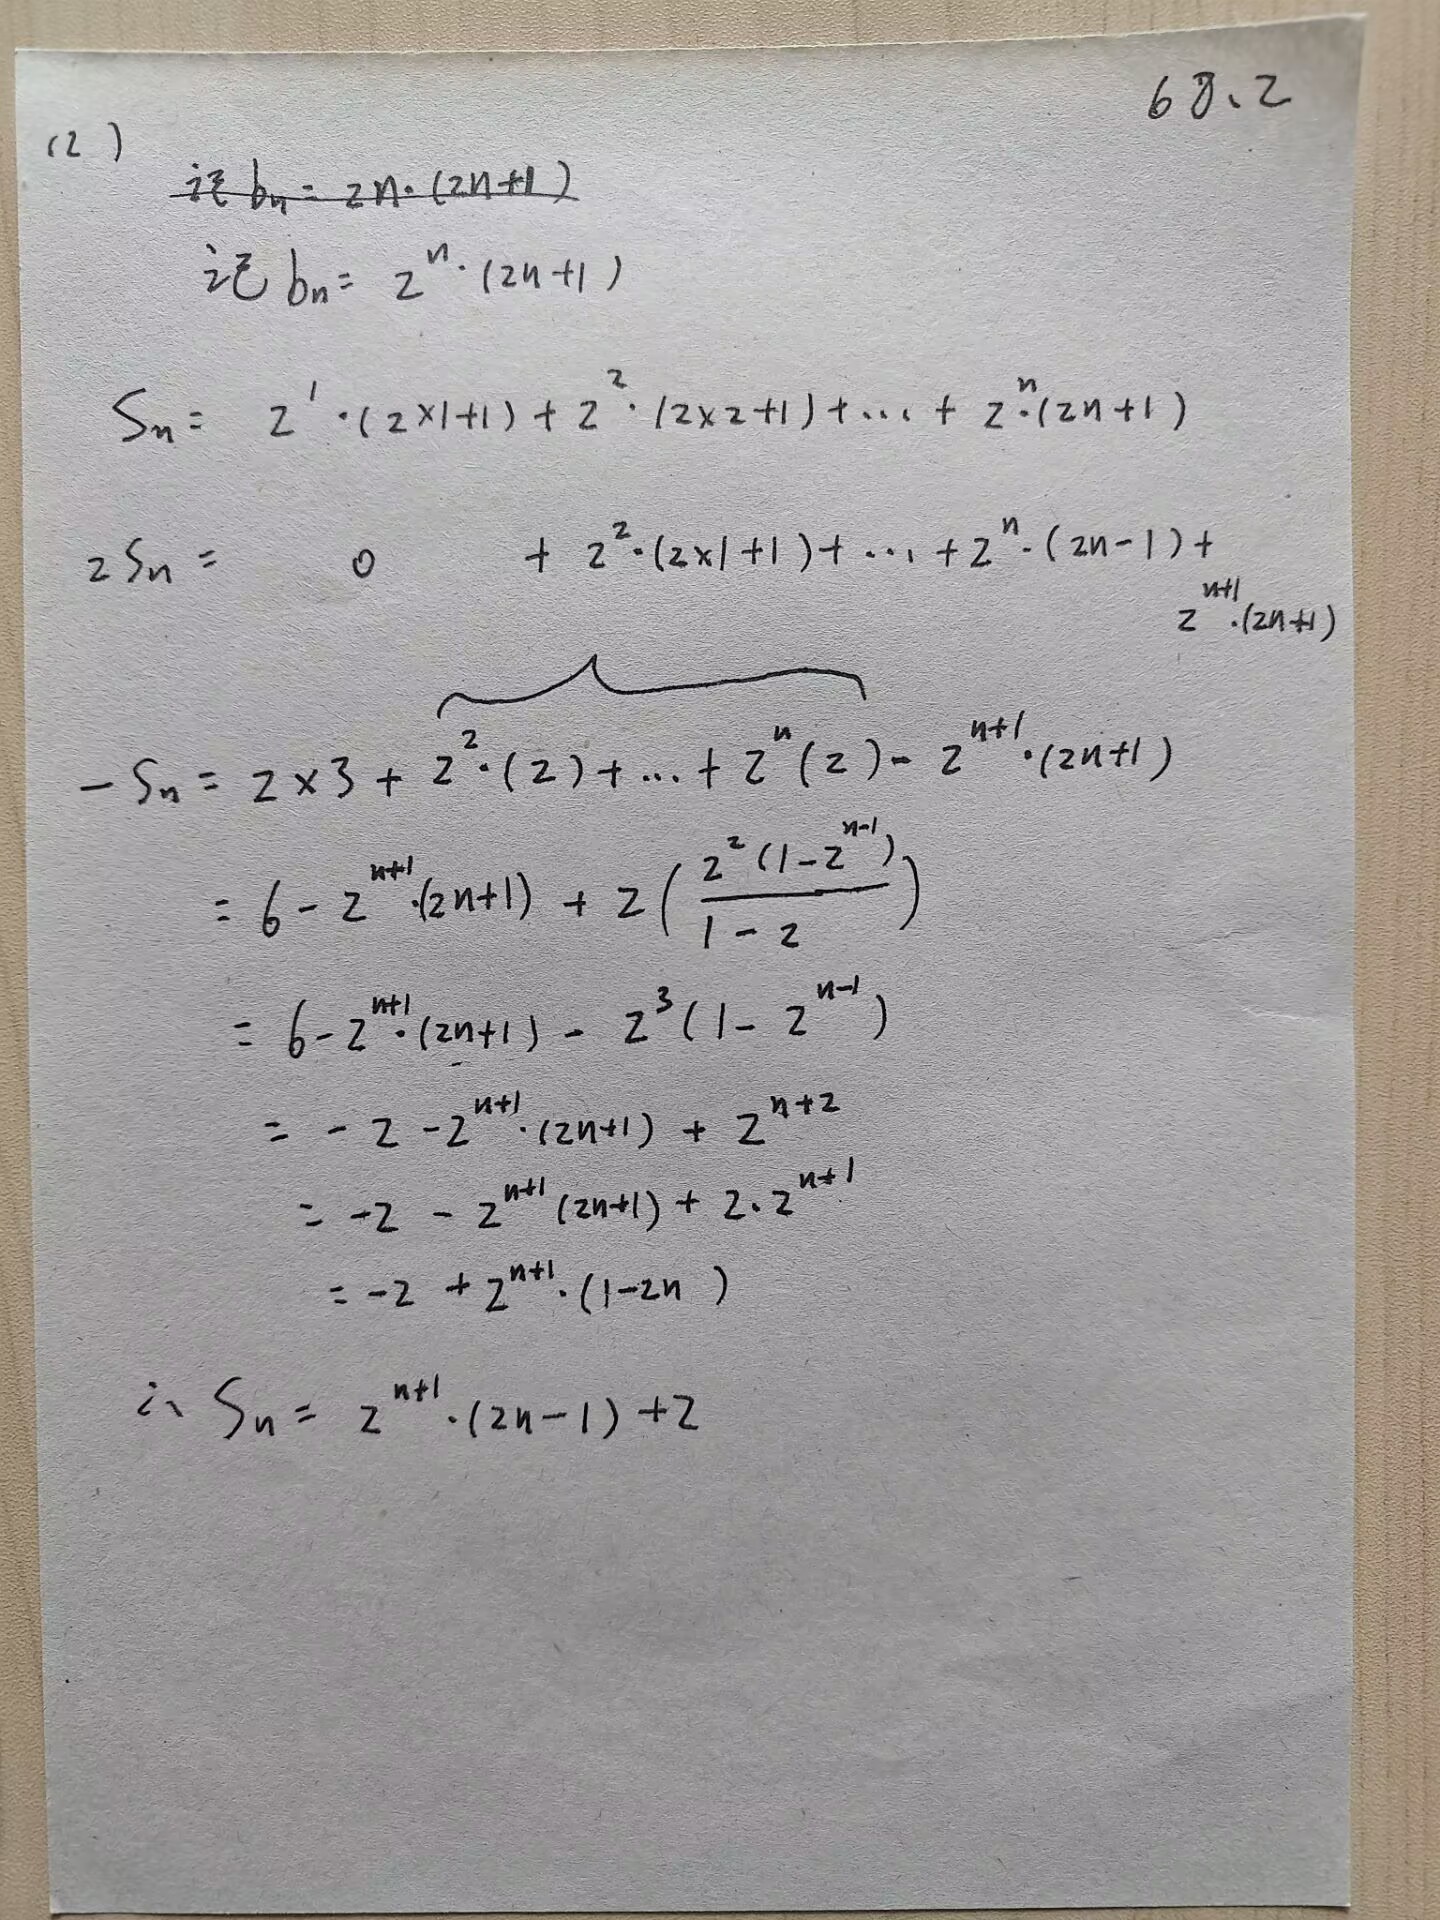 68、2
(2)
记 bn = 2n·(2n+1)
记 bn = 2^n·(2n+1)
Sn = 2^1·(2×1+1) + 2^2·(2×2+1) + ... + 2^n·(2n+1)
2Sn = 0 + 2^2·(2×1+1) + ... + 2^n·(2n-1) +
2^(n+1)·(2n+1)
-Sn = 2×3 + 2^2·(2) + ... + 2^n(2) - 2^(n+1)·(2n+1)
= 6 - 2^(n+1)·(2n+1) + 2(2^2(1-2^(n-1))/(1-2))
= 6 - 2^(n+1)·(2n+1) - 2^3(1-2^(n-1))
= -2 - 2^(n+1)·(2n+1) + 2^(n+2)
= -2 - 2^(n+1)(2n+1) + 2·2^(n+1)
= -2 + 2^(n+1)·(1-2n)
∴ Sn = 2^(n+1)·(2n-1) + 2